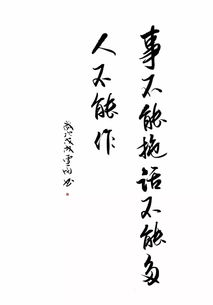 事不能拖话不能多
人不能作